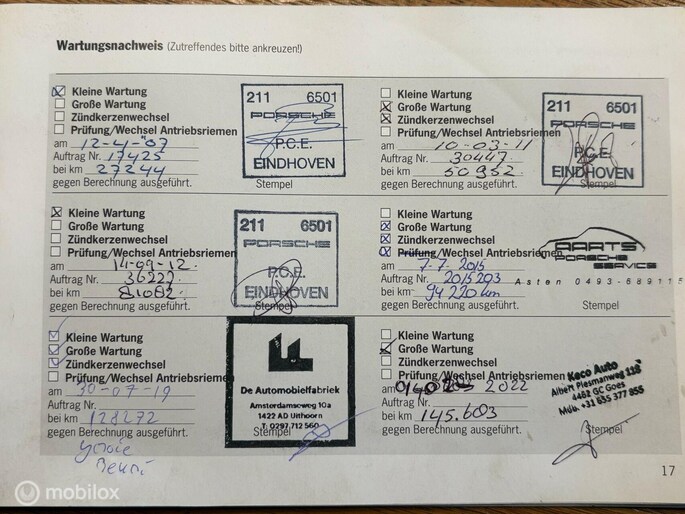 Wartungsnachweis (Zutreffendes bitte ankreuzen!)
Kleine Wartung
Große Wartung
Zündkerzenwechsel
Prüfung/Wechsel Antriebsriemen
am 12-4-'07
Auftrag Nr. 17425
bei km 27244
gegen Berechnung ausgeführt.
Stempel
211 6501
PORSCHE
P.C.E.
EINDHOVEN
Kleine Wartung
Große Wartung
Zündkerzenwechsel
Prüfung/Wechsel Antriebsriemen
am 10-03-11
Auftrag Nr. 30447
bei km 50952
gegen Berechnung ausgeführt.
Stempel
211 6501
PORSCHE
P.C.E.
EINDHOVEN
Kleine Wartung
Große Wartung
Zündkerzenwechsel
Prüfung/Wechsel Antriebsriemen
am 14-09-12
Auftrag Nr. 36227
bei km 81082
gegen Berechnung ausgeführt.
Stempel
211 6501
PORSCHE
P.C.E.
EINDHOVEN
Kleine Wartung
Große Wartung
Zündkerzenwechsel
Prüfung/Wechsel Antriebsriemen
am 7-7-2015
Auftrag Nr. 2015203
bei km 94220 km
gegen Berechnung ausgeführt.
Stempel
AARTS
PORSCHE
SERVICE
Asten 0493-689115
Kleine Wartung
Große Wartung
Zündkerzenwechsel
Prüfung/Wechsel Antriebsriemen
am 30-07-19
Auftrag Nr.
bei km 128272
gegen Berechnung ausgeführt.
Stempel
De Automobielfabriek
Amsterdamseweg 10a
1422 AD Uithoorn
T. 0297.712560
Kleine Wartung
Große Wartung
Zündkerzenwechsel
Prüfung/Wechsel Antriebsriemen
am 2022
Auftrag Nr.
bei km 145.603
gegen Berechnung ausgeführt.
Stempel
Keco Auto
Albert Plesmanweg 11B
4462 GC Goes
Mob. +31 635 377 855
17
mobilox